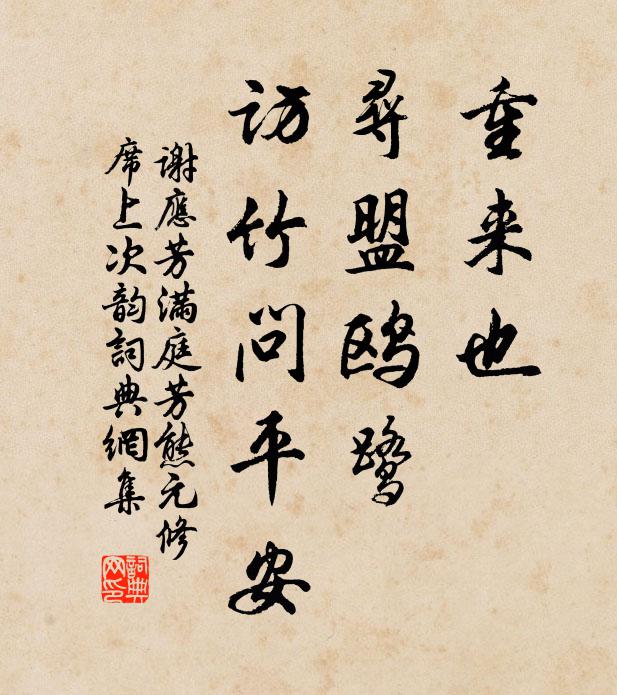 重来也
尋盟鸥鹭
访竹问平安
谢應芳满庭芳熊元修
席上次韵詞典網集
詞典
网印